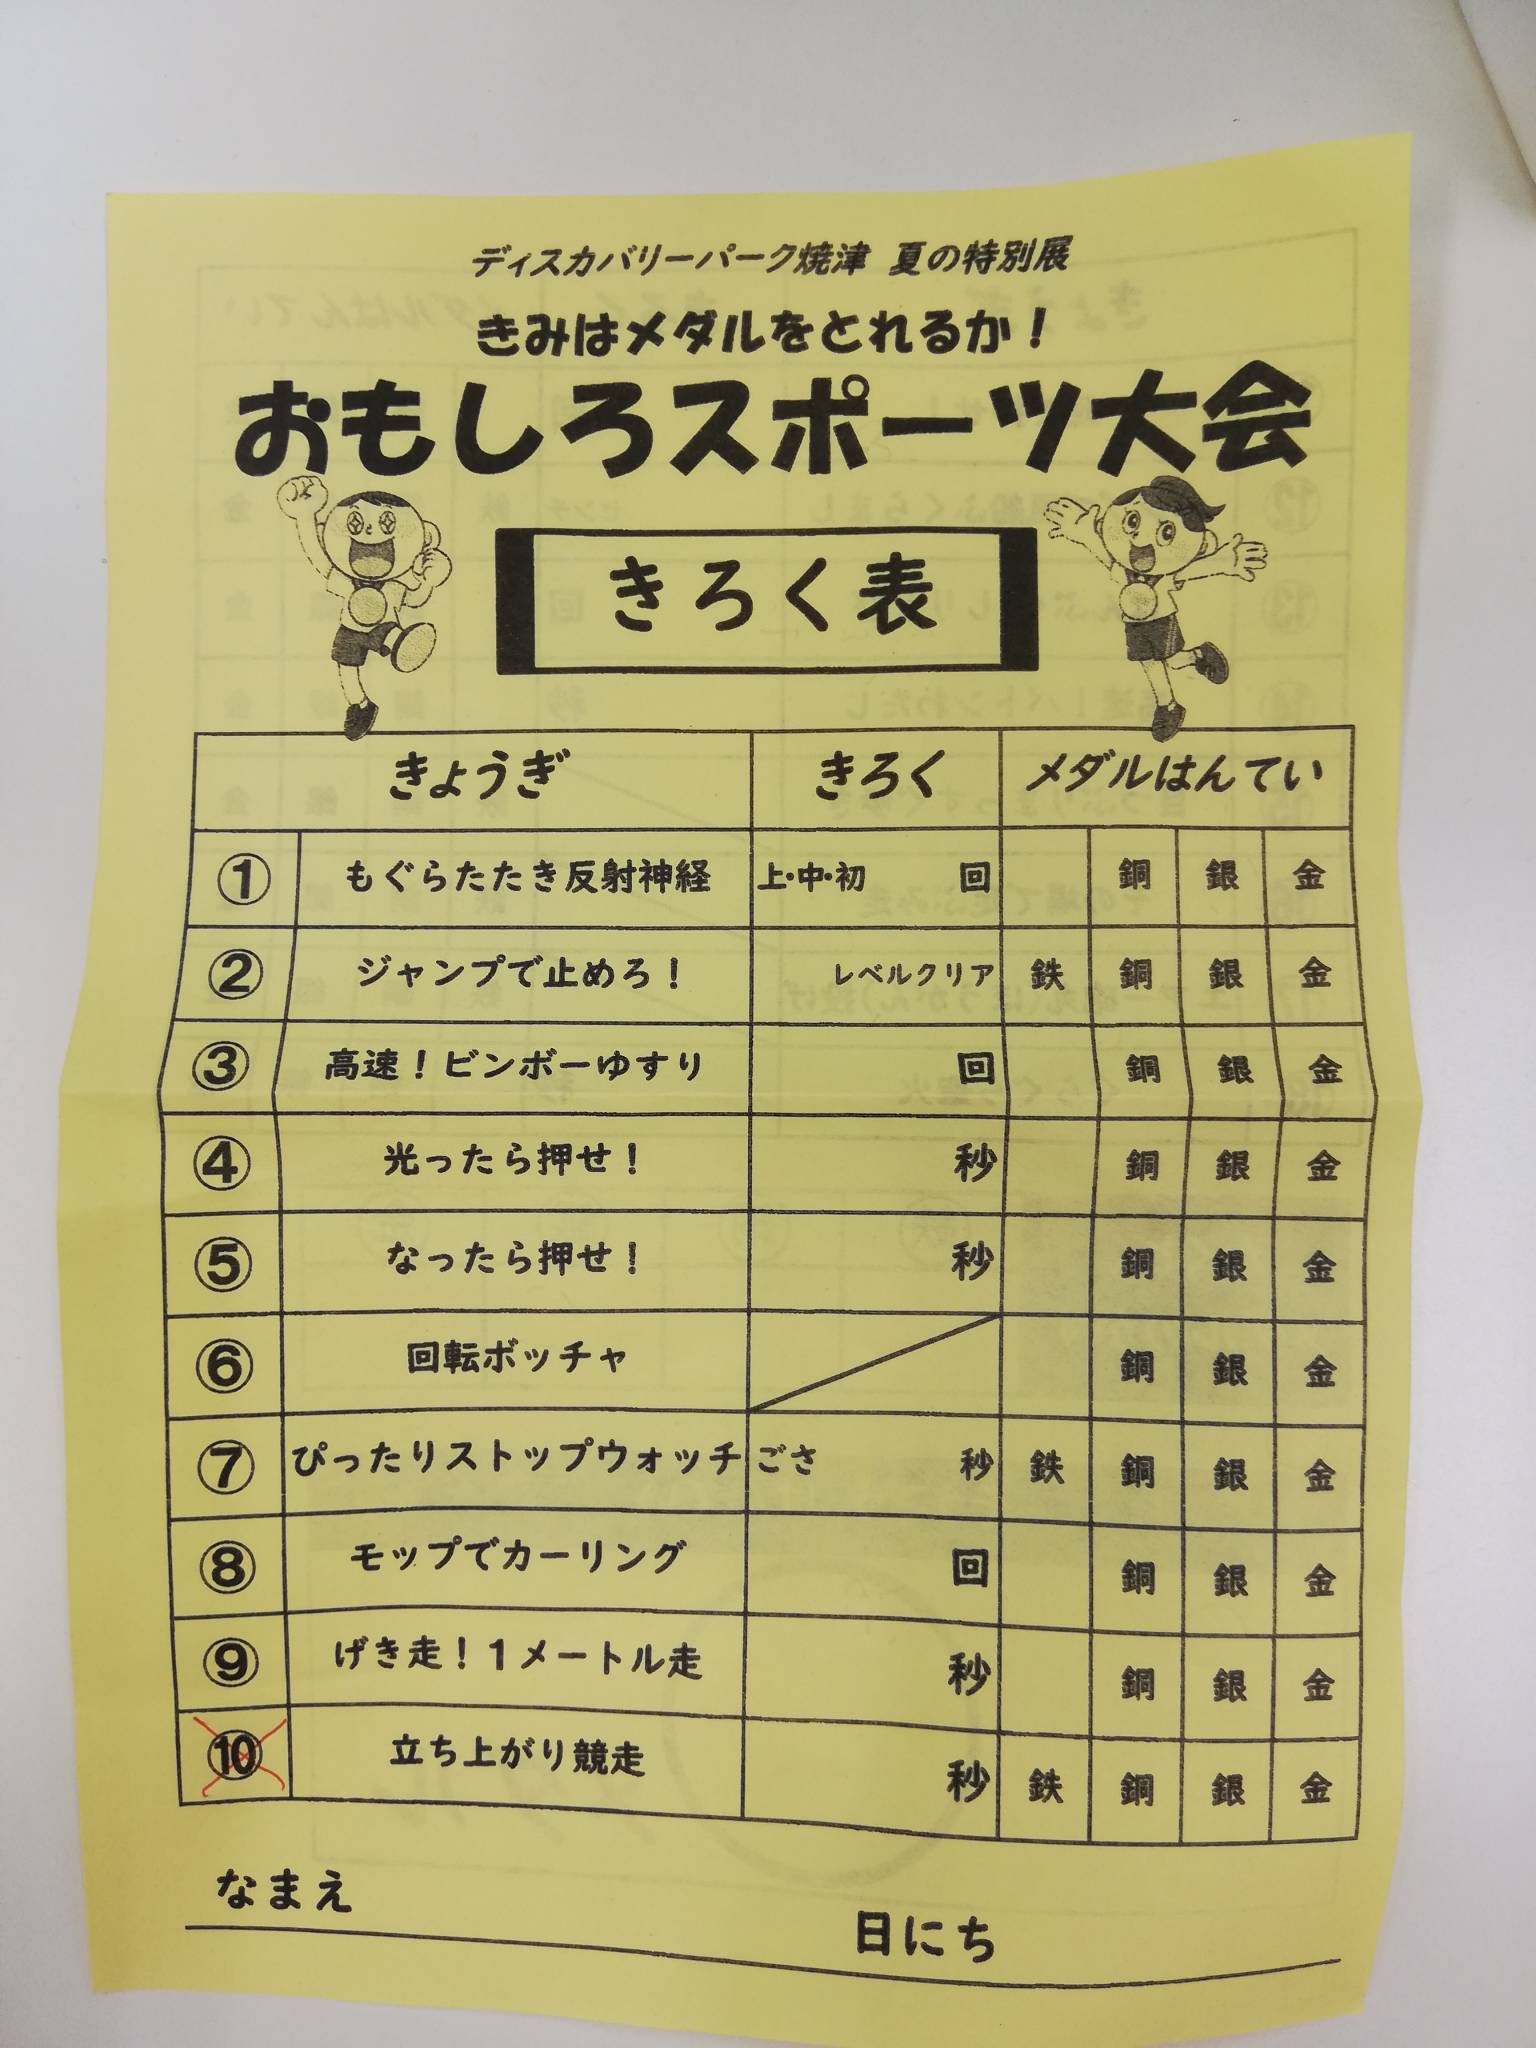 ディスカバリーパーク焼津 夏の特別展
きみはメダルをとれるか！
おもしろスポーツ大会
きろく表
きょうぎ きろく メダルはんてい
① もぐらたたき反射神経 上・中・初 回 銅 銀 金
② ジャンプで止めろ！ レベルクリア 鉄 銅 銀 金
③ 高速！ビンボーゆすり 回 銅 銀 金
④ 光ったら押せ！ 秒 銅 銀 金
⑤ なったら押せ！ 秒 銅 銀 金
⑥ 回転ボッチャ 銅 銀 金
⑦ ぴったりストップウォッチ ごさ 秒 鉄 銅 銀 金
⑧ モップでカーリング 回 銅 銀 金
⑨ げき走！１メートル走 秒 銅 銀 金
⑩ 立ち上がり競走 秒 鉄 銅 銀 金
なまえ 日にち